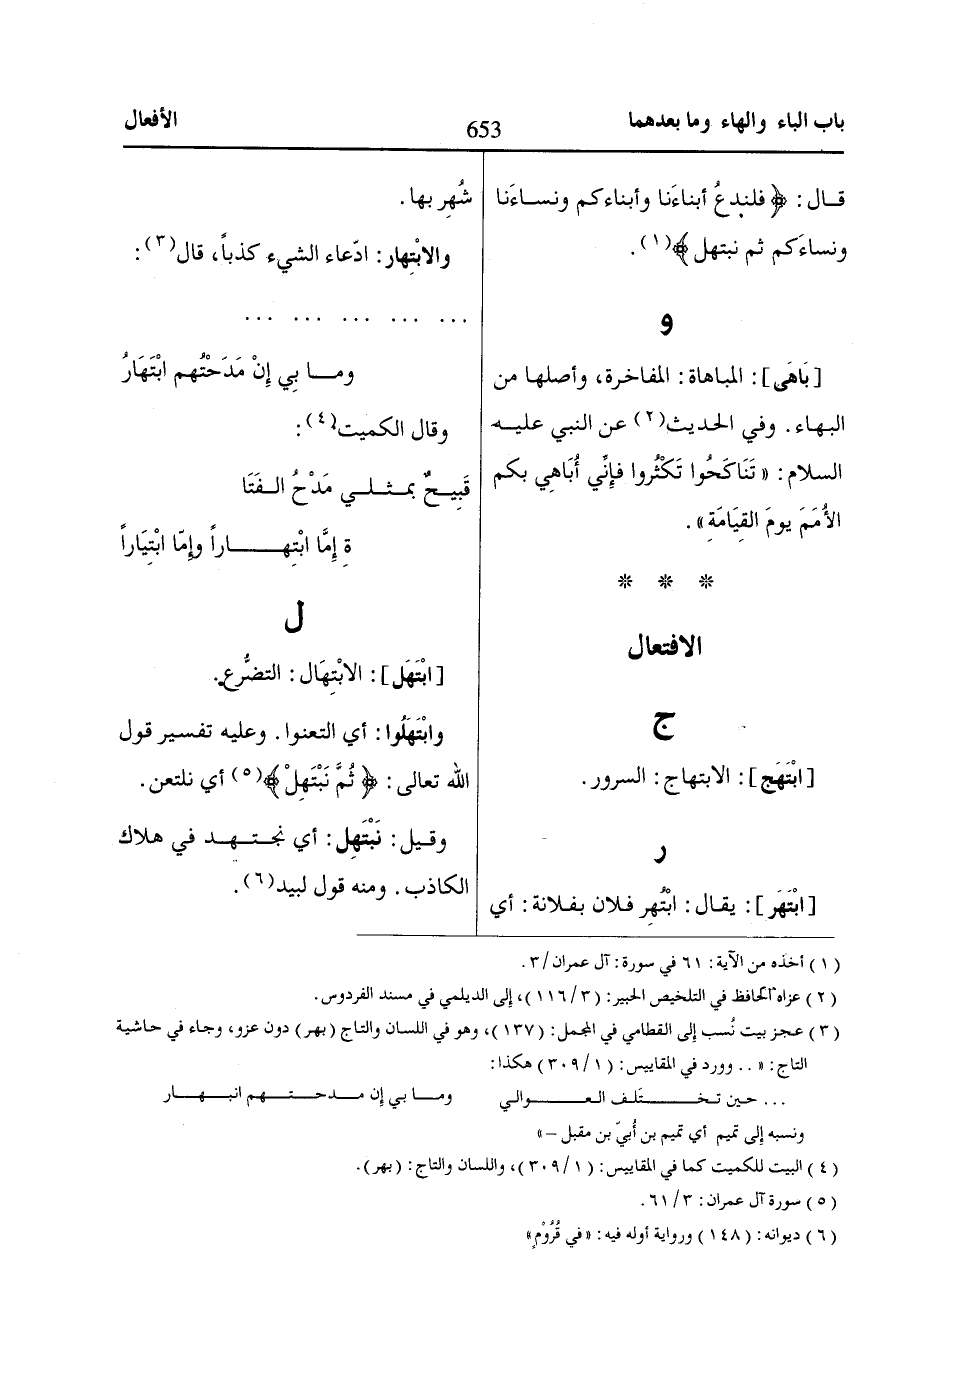 باب الباء والهاء وما بعدهما
653
الأفعال
قال: ﴿فلندعُ أبناءَنا وأبناءكم ونساءَنا
ونساءَكم ثم نبتهل﴾(١).
و
[بَاهَى]: المباهاة: المفاخرة، وأصلها من
البهاء. وفي الحديث(٢) عن النبي عليه
السلام: «تَنَاكَحُوا تَكْثُروا فإِنِّي أُبَاهِي بكم
الأُمَمَ يومَ القِيَامَة».
* * *
الافتعال
ج
[ابْتَهَج]: الابتهاج: السرور.
ر
[ابْتَهَر]: يقال: ابْتُهِر فلان بفلانة: أي
شُهِر بها.
والابْتِهار: ادّعاء الشيء كذباً، قال(٣):
... ... ... ... ...
وما بي إِنْ مَدَحْتُهم ابْتَهَارُ
وقال الكميت(٤):
قَبِيحٌ بمثلي مَدْحُ الفَتَا
ةِ إِمَّا ابْتِهاراً وإِمّا ابْتِيَاراً
ل
[ابْتَهَل]: الابْتِهَال: التضرُّع.
وابْتَهَلُوا: أي التعنوا. وعليه تفسير قول
الله تعالى: ﴿ثُمَّ نَبْتَهِلْ﴾(٥) أي نلتعن.
وقيل: نَبْتَهِل: أي نجتهد في هلاك
الكاذب. ومنه قول لبيد(٦).
(١) أخذه من الآية: ٦١ في سورة: آل عمران/٣.
(٢) عزاه الحافظ في التلخيص الحبير: (٣/١١٦)، إلى الديلمي في مسند الفردوس.
(٣) عجز بيت نُسب إلى القطامي في المجمل: (١٣٧)، وهو في اللسان والتاج (بهر) دون عزو، وجاء في حاشية
التاج: «.. وورد في المقاييس: (١/٣٠٩) هكذا:
... حين تختلف العوالي وما بي إن مدحتهم ابتهار
ونسبه إلى تميم أي تميم بن أُبيّ بن مقبل –»
(٤) البيت للكميت كما في المقاييس: (١/٣٠٩)، واللسان والتاج: (بهر).
(٥) سورة آل عمران: ٣/٦١.
(٦) ديوانه: (١٤٨) ورواية أوله فيه: «في قُرُوْمٍ»